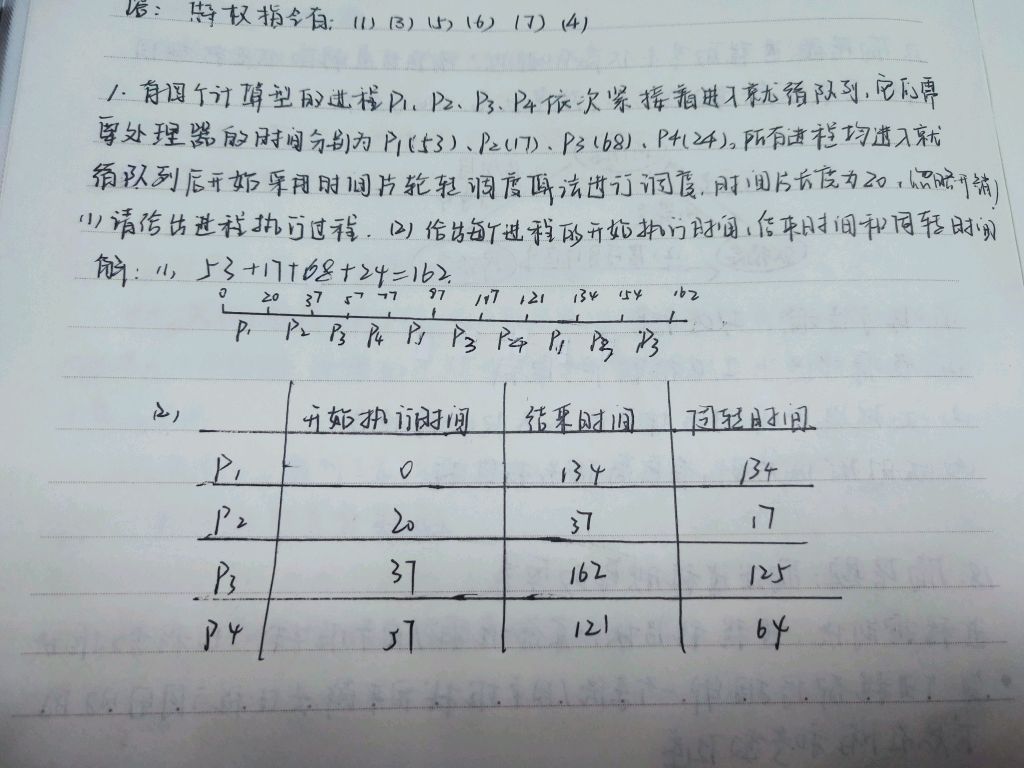 答: 特权指令有: (1) (3) (5) (6) (7) (4)
1. 有四个计算型的进程P1、P2、P3、P4依次紧接着进入就绪队列,它们需
要处理器的时间分别为P1(53)、P2(17)、P3(68)、P4(24)。所有进程均进入就
绪队列后开始采用时间片轮转调度算法进行调度,时间片长度为20,(忽略开销)
(1) 请给出进程执行过程. (2) 给出每个进程的开始执行时间,结束时间和周转时间
解: (1) 53+17+68+24=162.
0 20 37 57 77 97 117 121 134 154 162
P1 P2 P3 P4 P1 P3 P4 P1 P3 P3
(2) 开始执行时间 结束时间 周转时间
P1 0 134 134
P2 20 37 17
P3 37 162 125
P4 57 121 64